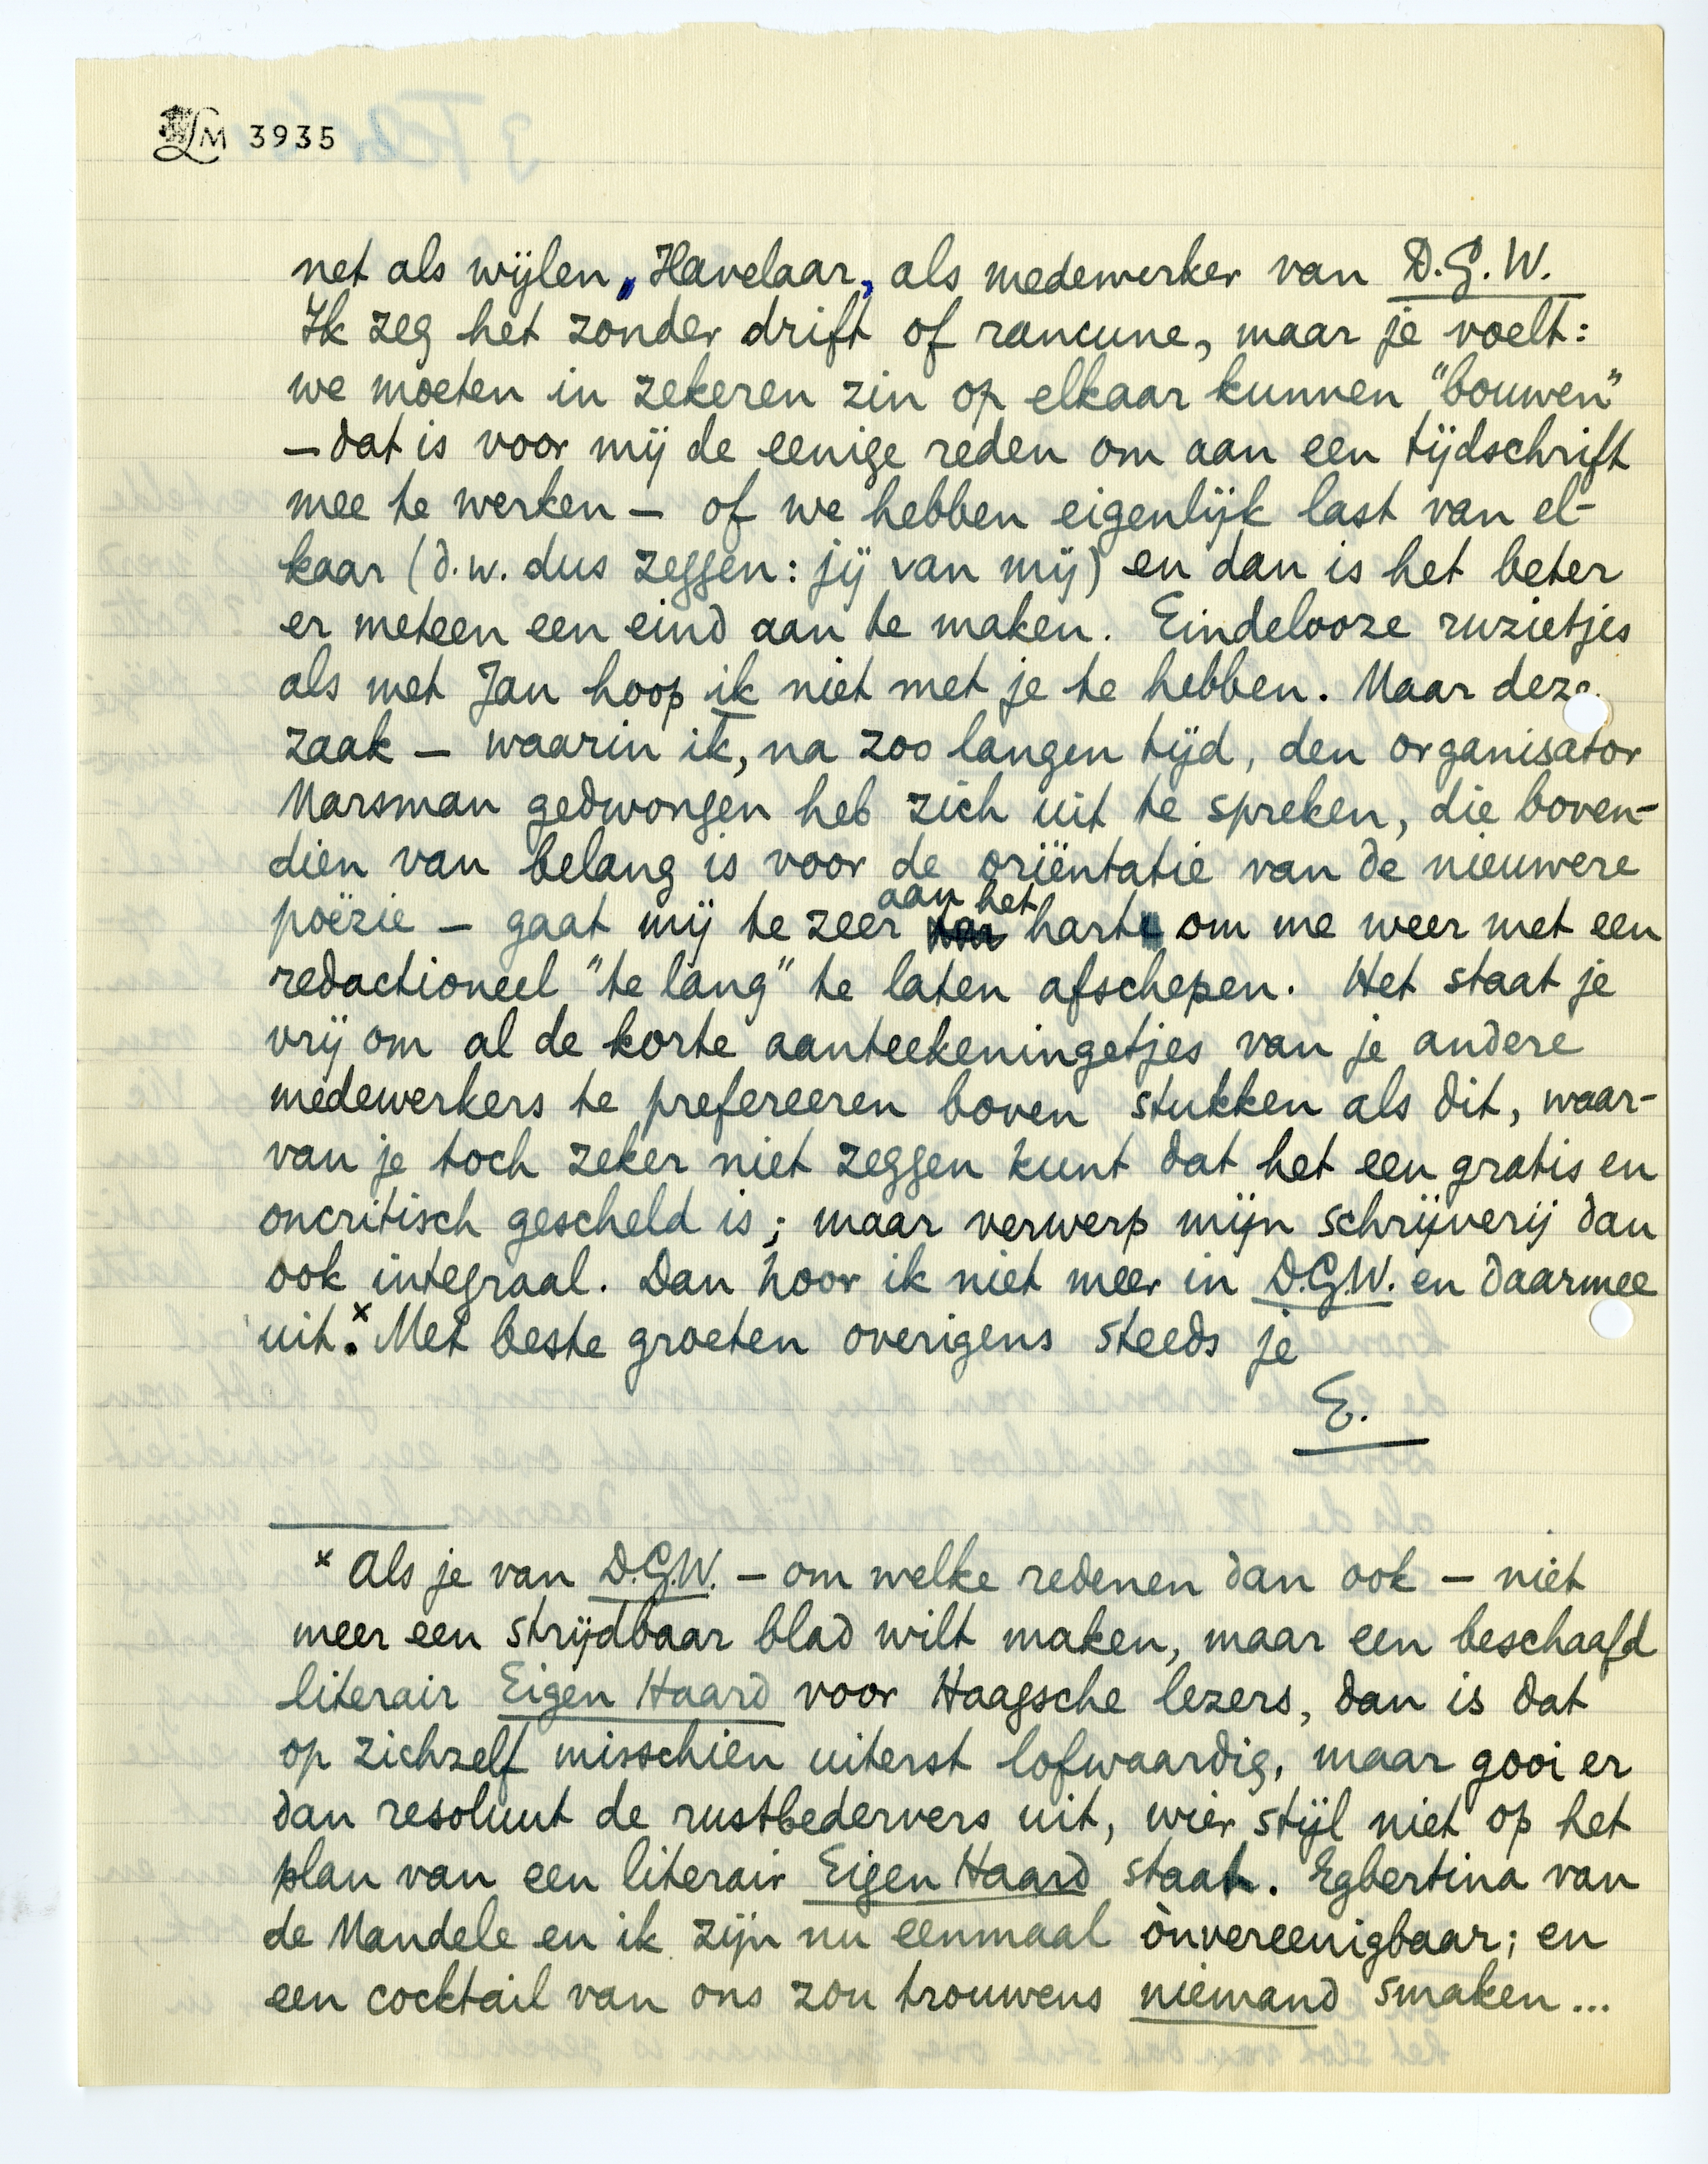 LM 3935
net als wijlen „Havelaar, als medewerker van D.G.W.
Ik zeg het zonder drift of rancune, maar je voelt:
we moeten in zekeren zin op elkaar kunnen "bouwen"
— dat is voor mij de eenige reden om aan een tijdschrift
mee te werken — of we hebben eigenlijk last van el-
kaar (d.w. dus zeggen: jij van mij) en dan is het beter
er meteen een eind aan te maken. Eindelooze ruzietjes
als met Jan hoop ik niet met je te hebben. Maar deze
zaak — waarin ik, na zoo langen tijd, den organisator
Marsman gedwongen heb zich uit te spreken, die boven-
dien van belang is voor de oriëntatie van de nieuwere
poëzie — gaat mij te zeer aan het hart om me weer met een
redactioneel "te lang" te laten afschepen. Het staat je
vrij om al de korte aanteekeningetjes van je andere
medewerkers te prefereeren boven stukken als dit, waar-
van je toch zeker niet zeggen kunt dat het een gratis en
oncritisch gescheld is; maar verwerp mijn schrijverij dan
ook integraal. Dan hoor ik niet meer in D.G.W. en daarmee
uit.x Met beste groeten overigens steeds je
E.
x Als je van D.G.W. — om welke redenen dan ook — niet
meer een strijdbaar blad wilt maken, maar een beschaafd
literair Eigen Haard voor Haagsche lezers, dan is dat
op zichzelf misschien uiterst lofwaardig, maar gooi er
dan resoluut de rustbedervers uit, wier stijl niet op het
plan van een literair Eigen Haard staat. Egbertina van
de Mandele en ik zijn nu eenmaal ònvereenigbaar; en
een cocktail van ons zou trouwens niemand smaken...